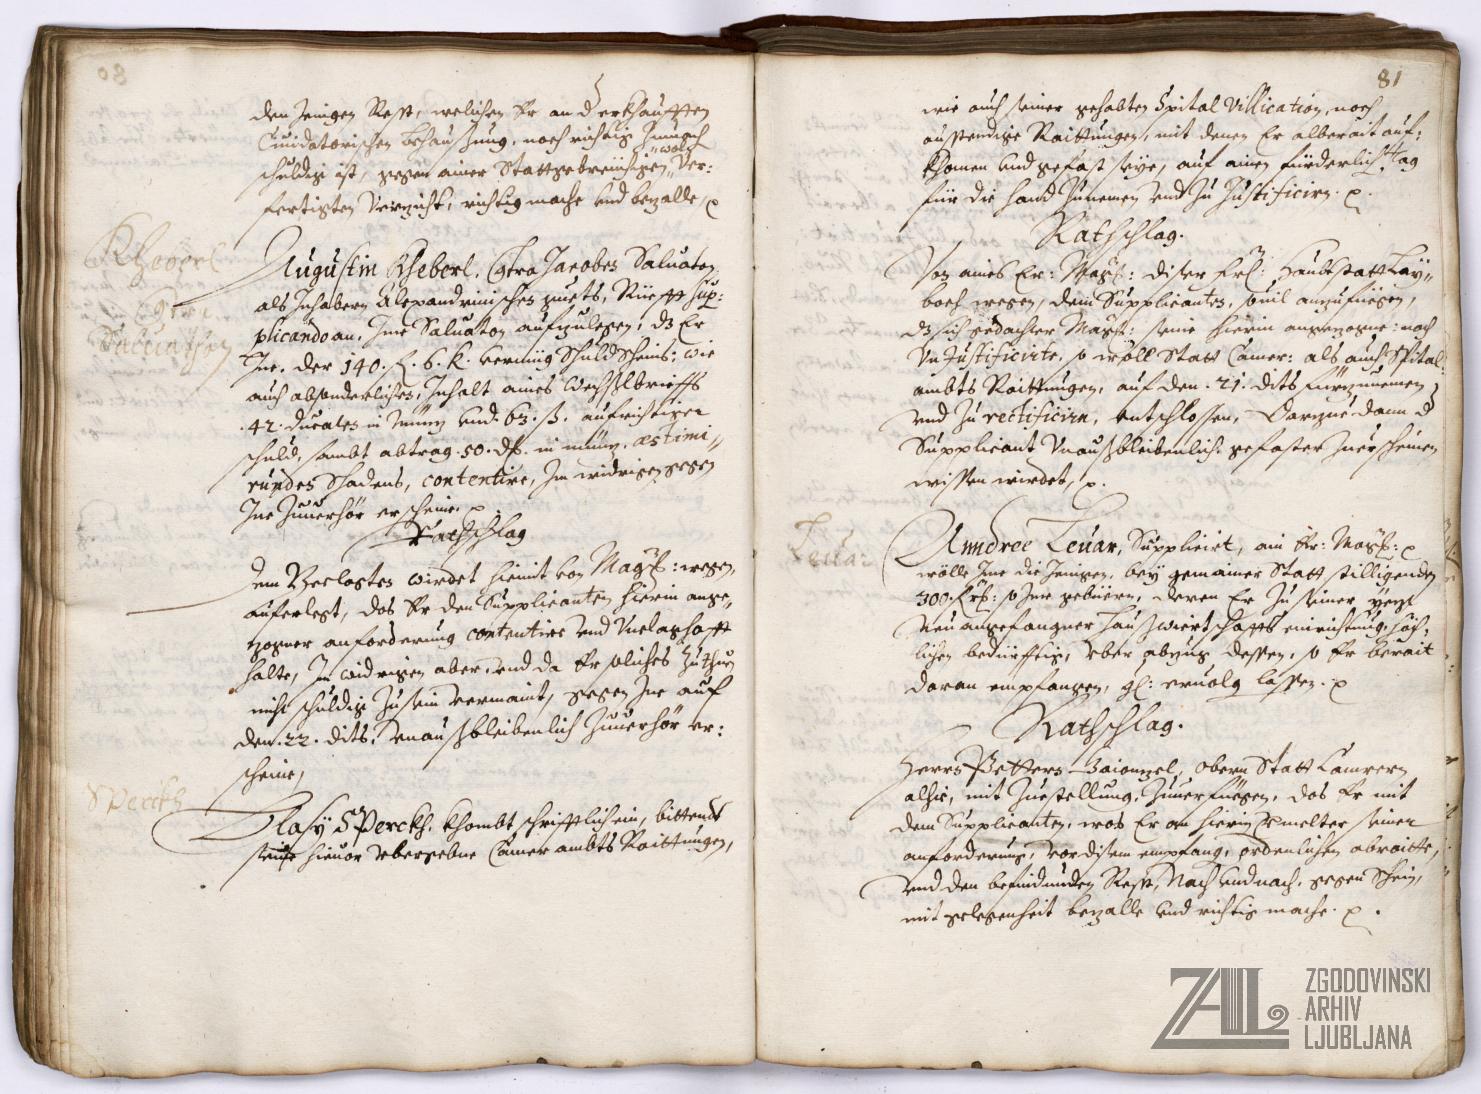 80
den Jenigen Rest, welichen Er an d erkhaufften
Cuidatorischen Behaussung, noch richtig
schuldig ist, gegen ainer Stattgebreichigen wol Ver:
fertigten Verzicht, richtig mache und bezalle
Kheberl
Contra
Augustin Kheberl, Contra Jacoben Saluaton
als Inhabern Alexandrinischen guets, Rüefft Sup:
plicando an, Ime Saluaton aufzulegen, dz Er
Ime, der 140. f. 6. k. vermüg Schuldscheins: wie
auch absonderlichen, Inhalt aines Wechslbrieffs
42. ducaten in und 63. ß. aufrichtiger
schuld, sambt abtrag 50. in aestimi
rundes Schadens, contentire, Im widrigen gegen
Ime Zuuerhör erscheine.
Rathschlag
Dem Beclagten wirdet hiemit von Magist: wegen,
auferlegt, das Er den Supplicanten hierin ange
zogner anforderung contentire und Unclaghafft
halte, In widrigen aber, und da Er soliches Zuthun
nicht schuldig Zusein vermaint, gegen Ime auf
den 22. dits, Unausbleibenlich Zuuerhör er:
scheine,
SPerckh
Blasy SPerckh, khombt schrifftlich ein, bittendt
seine hieuor Ubergebne Camer ambts Raittungen,
81
wie auch seiner gehabten Spital Villication, noch
aussendige Raittungen, mit denen Er alberait auf:
khomen und gefast seye, auf ainen fürderlich Tag
für die Hand Zunemen und Zu Justificirn.
Rathschlag.
Von aines Er: Magist: diser Haubtstatt Lay
bach wegen, dem Supplicanten, souil anzufüegen,
dz sich gedachter Magist: seine hierin angezogne: noch
Un Justificirte, so woll Statt Camer: als auch Spital:
ambts Raittungen, auf den 21. dits fürzunemen
und Zu rectificirn, entschlossen, Darzue dann d
Supplicant Unausbleibenlich gefaster Zuerscheinen
wissen wirdet,
Leuar
Anndree Leuar, Supplicirt, ain Er: Magist:
wölle Ime die Jenigen, bey gemainer Statt stilligenden
300. so Ime gebüern, deren Er Zu seiner yezt
Neu angefangner Hauswiertschaffts einrichtung, höch:
lichen bedürfftig, Uber abzug dessen, so Er berait
daran empfangen, gl: eruolg lassen.
Rathschlag.
Herrn Petter obern Statt Camrern
alhie, mit Zuestellung, Zuuerfüegen, das Er mit
dem Supplicanten, was Er an hierin ermelter seiner
anforderung, vor disem empfang, ordenlichen abraitte,
und den befindunden Rest, Nach und nach, gegen Schein,
mit gelegenheit bezalle und richtig mache.
ZAL
ZGODOVINSKI
ARHIV
LJUBLJANA